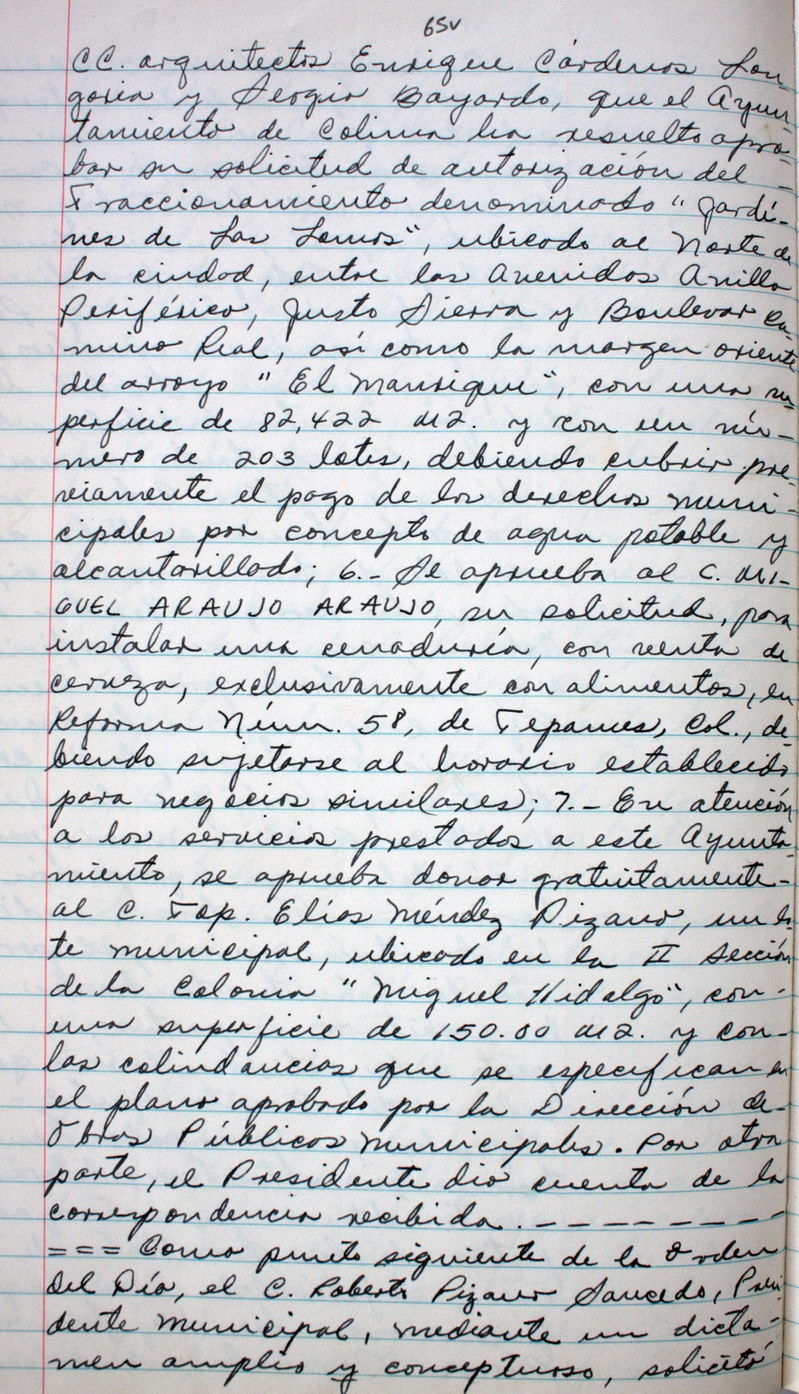 65v
CC. arquitectos Enrique Cárdenas Lon
goria y Sergio Bayardo, que el Ayun
tamiento de Colima ha resuelto apro-
bar su solicitud de autorización del -
Fraccionamiento denominado "Jardi-
nes de Las Lomas", ubicado al Norte de
la ciudad, entre las Avenidas Anillo
Periférico, Justo Sierra y Boulevar Ca-
mino Real, así como la margen oriente
del arroyo "El Manrique", con una su-
perficie de 82,422 M2. y con un nú-
mero de 203 lotes, debiendo cubrir pre-
viamente el pago de los derechos muni-
cipales por concepto de agua potable y
alcantarillado; 6.- Se aprueba al C. MI-
GUEL ARAUJO ARAUJO, su solicitud, para
instalar una cenaduría, con venta de
cerveza, exclusivamente con alimentos, en
Reforma Núm. 58, de Tepames, Col., de-
biendo sujetarse al horario establecido
para negocios similares; 7.- En atención
a los servicios prestados a este Ayunta-
miento, se aprueba donar gratuitamente-
al C. Top. Elías Méndez Pizano, un lo-
te municipal, ubicado en la II Sección
de la Colonia "Miguel Hidalgo", con-
una superficie de 150.00 M2. y con-
las colindancias que se especifican en
el plano aprobado por la Dirección de-
Obras Públicas Municipales. Por otra
parte, el Presidente dio cuenta de la
correspondencia recibida. - - - - - - - -
=== Como punto siguiente de la Orden
Del Día, el C. Roberto Pizano Saucedo, Presi
dente Municipal, mediante un dicta-
men amplio y conceptuoso, solicitó